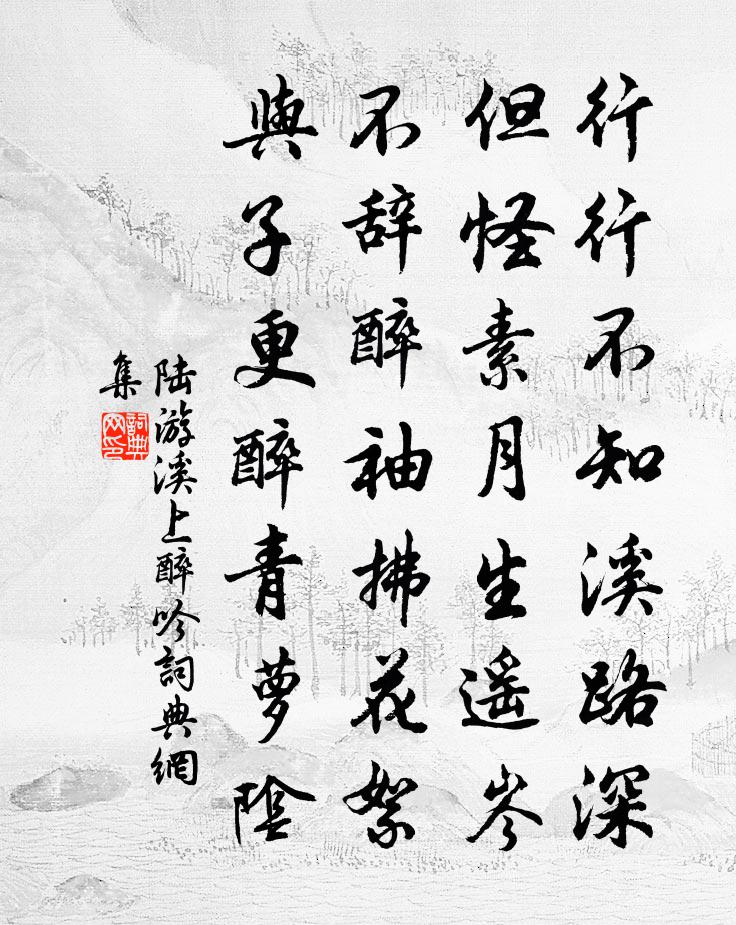 行行不知溪路深
但怪素月生遥岑
不辞醉袖拂花絮
與子更醉青萝陰
陆游溪上醉吟詞典網
集
詞典网印